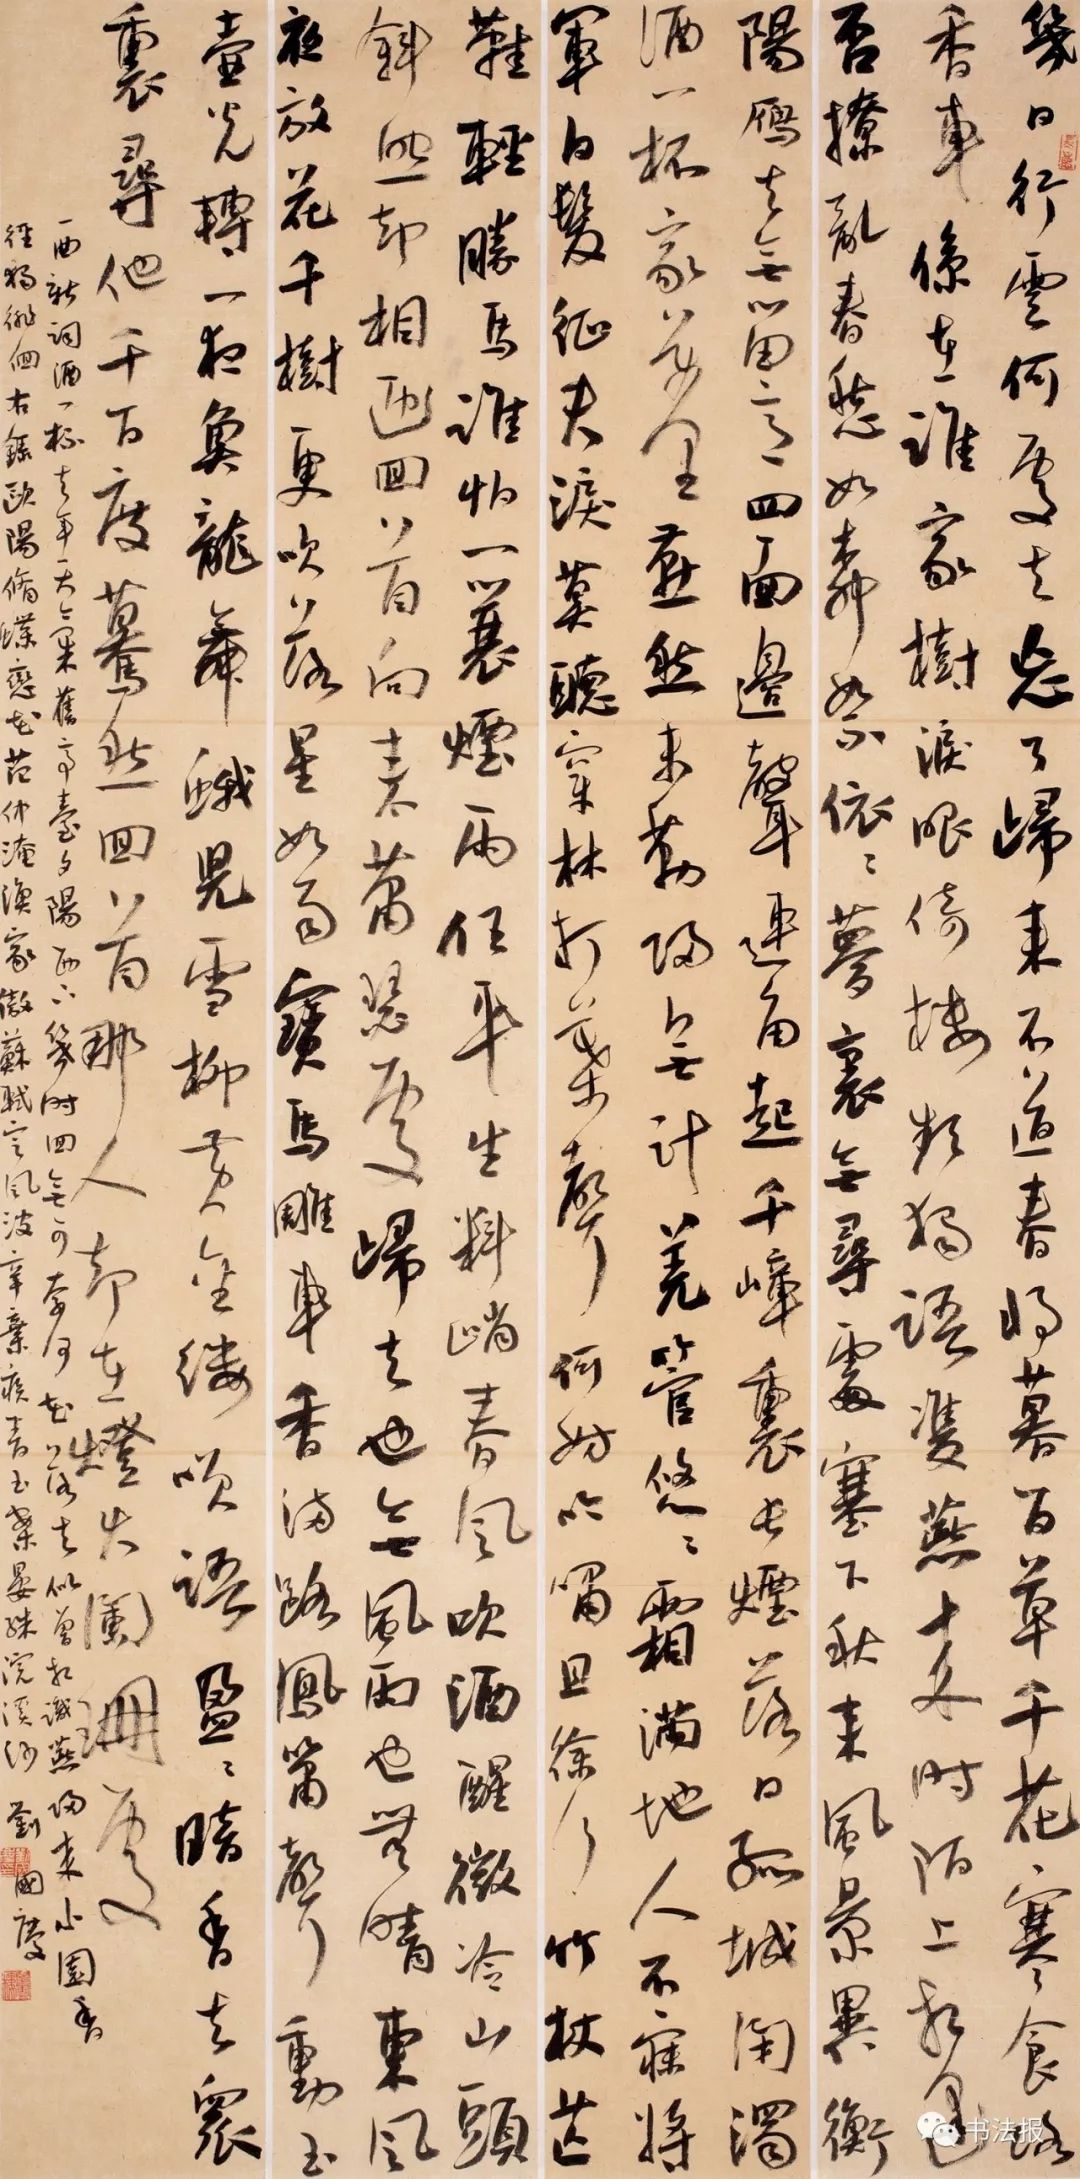 幾日行雲何處去忘了歸來不道春將暮百草千花寒食路
香車係在誰家樹淚眼倚樓頻獨語雙燕來時陌上相逢
否撩亂春愁如柳絮依依夢裏無尋處塞下秋來風景異衡
陽雁去無留意四面邊聲連角起千嶂裏長煙落日孤城閉濁
酒一杯家萬里燕然未勒歸無計羌管悠悠霜滿地人不寐將
軍白髮征夫淚莫聽穿林打葉聲何妨吟嘯且徐行竹杖芒
鞋輕勝馬誰怕一蓑煙雨任平生料峭春風吹酒醒微冷山頭
斜照却相迎回首向來蕭瑟處歸去也無風雨也無晴東風
夜放花千樹更吹落星如雨寶馬雕車香滿路鳳簫聲動玉
壺光轉一夜魚龍舞蛾兒雪柳黃金縷笑語盈盈暗香去衆
裏尋他千百度驀然回首那人却在燈火闌珊處
一曲新詞酒一杯去年天氣舊亭臺夕陽西下幾時回無可奈何花落去似曾相識燕歸來小園香
徑獨徘徊右錄歐陽脩蝶戀花范仲淹漁家傲蘇軾定風波辛棄疾青玉案晏殊浣溪沙劉國慶
书法报